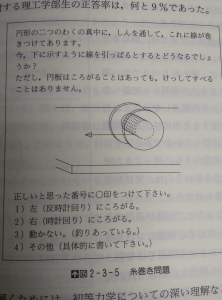 する理工学部生の正答率は，何と9％であった。
円形の二つのわくの真中に，しんを通して，これに線が巻
きつけてあります。
今，下に示すように線を引っぱるとするとどうなるでしょ
うか？
ただし，円板はころがることはあっても，けっしてすべる
ことはありません。
正しいと思った番号に○印をつけて下さい。
1）左（反時計回り）にころがる。
2）右（時計回り）にころがる。
3）動かない。（釣りあっている。）
4）その他（具体的に書いて下さい。）
図2-3-5 糸巻き問題
くためには，初等力学についての深い理解な